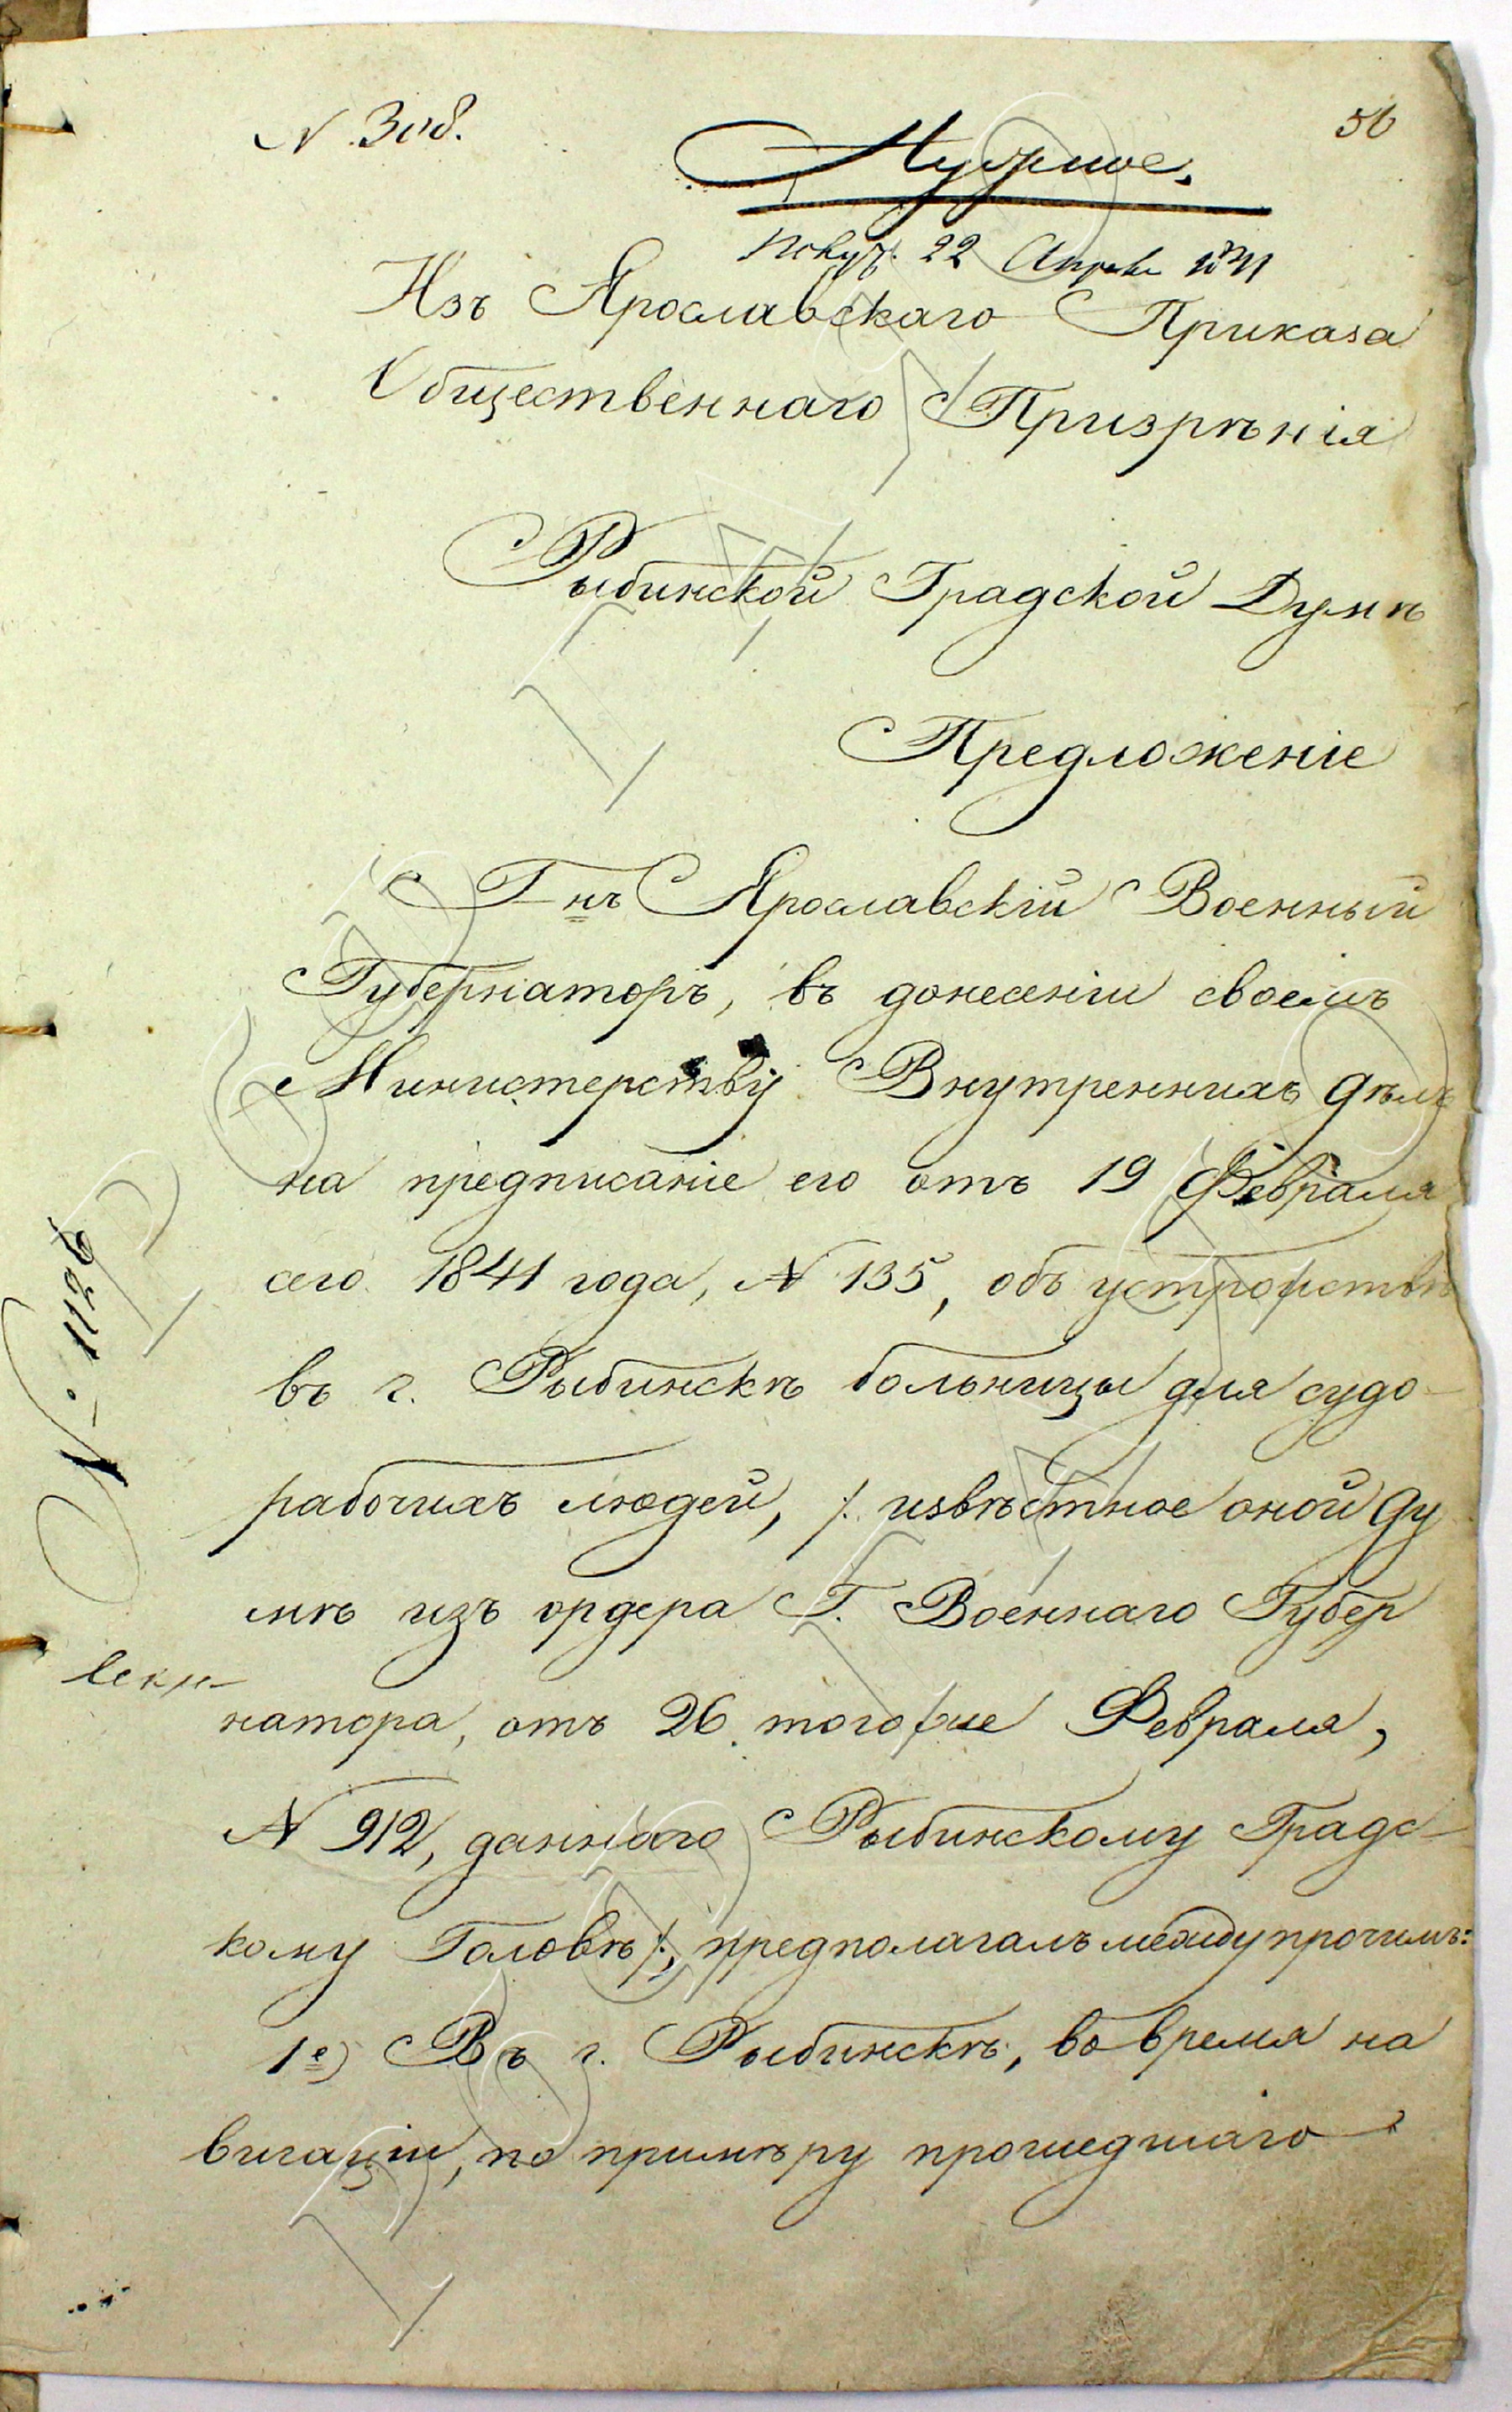 N 308.
56
Нужное.
Получ. 22 Апреля 1841
Изъ Ярославскаго Приказа
Общественнаго Призрѣнія
Рыбинской Градской Думѣ
Предложеніе
Г-нъ Ярославскій Военный
Губернаторъ, въ донесеніи своемъ
Министерству Внутреннихъ дѣлъ
на предписаніе его отъ 19 Февраля
сего 1841 года, N 135, объ устройствѣ
въ г. Рыбинскѣ больницы для судо-
рабочихъ людей, /: извѣстное оной Ду
мѣ изъ ордера Г. Военнаго Губер
натора, отъ 26 того же Февраля,
N 912, даннаго Рыбинскому Градс-
кому Головѣ :/, предполагалъ между прочимъ:
1е) Въ г. Рыбинскѣ, во время на
вигаціи, по примѣру прошедшаго
N 1126